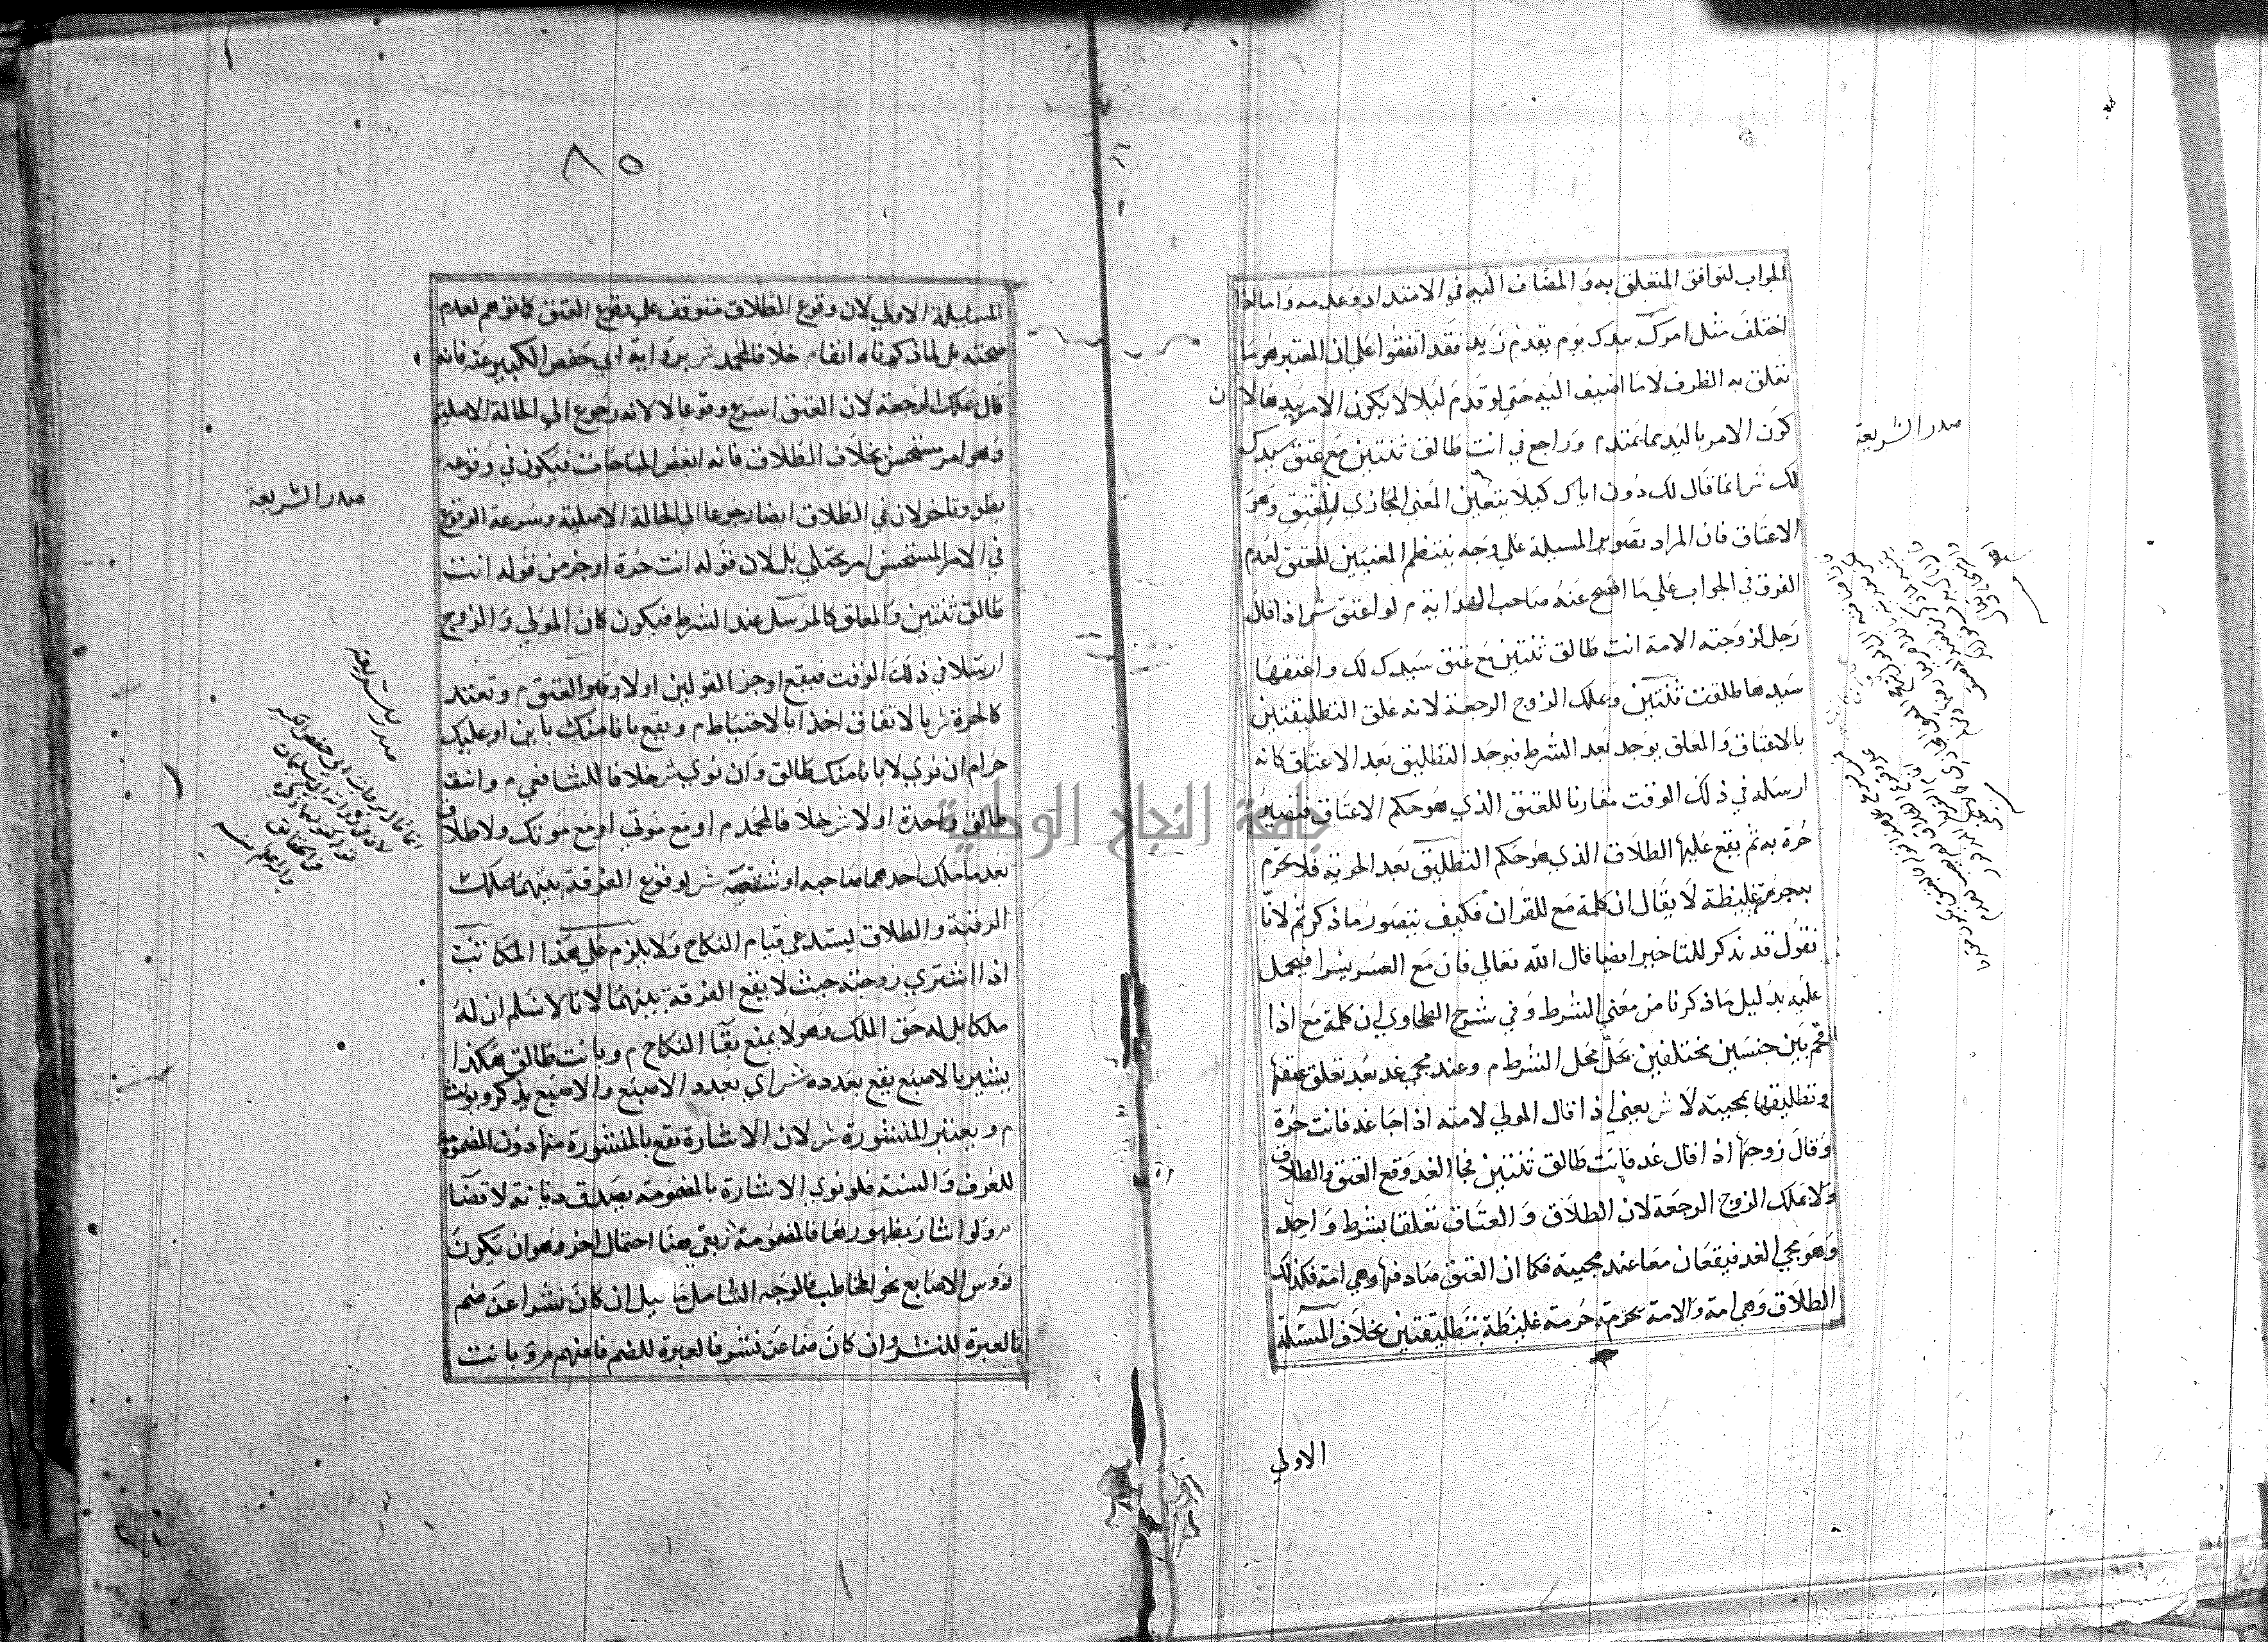 الجواب لتوافق المتعلق به والمضاف اليه في الامتداد وعدمه واما اذا
اختلف مثل امرك بيدك يوم يقدم زيد فقد اتفقوا على ان المعتبر هو ما
تعلق به الظرف لا ما اضيف اليه حتى لو قدم ليلا لا يكون الامر بيدها لان
كون الامر باليد مما يمتد م وراجع في انت طالق ثنتين مع عتق سيدك
لك ش انما قال لك دون اياك كيلا يتعين المعنى المجازي للعتق وهو
الاعتاق فان المراد تصوير المسيلة على وجه ينتظم المعنيين للعتق لعدم
الفرق في الجواب على ما افصح عنه صاحب الهداية م لو اعتق ش اذا قال
رجل لزوجته الامة انت طالق ثنتين مع عتق سيدك لك واعتقها
سيدها طلقت ثنتين ويملك الزوج الرجعة لانه علق التطليقتين
بالاعتاق والمعلق يوجد بعد الشرط فيوجد التطليق بعد الاعتاق كانه
ارسله في ذلك الوقت مقارنا للعتق الذي هو حكم الاعتاق فتصير
حرة به ثم يقع عليها الطلاق الذي هو حكم التطليق بعد الحرية فلا تحرم
بحرمة غليظة لا يقال ان كلمة مع للقران فكيف يتصور ما ذكرتم لانا
نقول قد تذكر للتاخير ايضا قال الله تعالي فان مع العسر يسرا فيحمل
عليه بدليل ما ذكرنا من معني الشرط وفي شرح الطحاوي ان كلمة مع اذا
اقحم بين جنسين مختلفين يحل محل الشرط م وعند مجي غد بعد تعلق عتقها
وتطليقها بمجيئه لا ش يعني اذا قال المولي لامته اذا جا غد فانت حرة
وقال زوجها اذا قال غد فانت طالق ثنتين فجا الغد وقع العتق والطلاق
ولا يملك الزوج الرجعة لان الطلاق والعتاق تعلقا بشرط واحد
وهو مجي الغد فيقعان معا عند مجيئه فكما ان العتق صادفها وهي امة فكذلك
الطلاق وهي امة والامة تحرم حرمة غليظة بتطليقتين بخلاف المسئلة
الاولي
صدر الشريعة
٨٥
المسئلة الاولي لان وقوع الطلاق متوقف علي وقوع العتق كما توهم لعدم
صحته بل لما ذكرناه انفا م خلافا لمحمد ش برواية ابي حفص الكبير عنه فانه
قال يملك الرجعة لان العتق اسرع وقوعا لا لانه رجوع الي الحالة الاصلية
وهو امر مستحسن بخلاف الطلاق فانه ابغض المباحات فيكون في وقوعه
بطو وتاخر لان في الطلاق ايضا رجوعا الي الحالة الاصلية وسرعة الوقوع
في الامر المستحسن امر يحتملي بل لان قوله انت حرة اوجز من قوله انت
طالق ثنتين والمعلق كالمرسل عند الشرط فيكون كان المولي والزوج
ارسلا في ذلك الوقت فيقع اوجز القولين اولا وهو العتق م وتعتد
كالحرة ش بالاتفاق اخذا بالاحتياط م ويقع بانا منك باين او عليك
حرام ان نوي لا بانا منك طالق وان نوي ش خلافا للشافعي م وانت
طالق واحدة او لا ش خلافا لمحمد م او مع موتي او مع موتك ولا طلاق
بعد ما ملك احدهما صاحبه او شقصه ش لوقوع الفرقة بينهما بملك
الرقبة والطلاق يستدعي قيام النكاح ولا يلزم علي هذا المكاتب
اذا اشتري زوجته حيث لا يقع الفرقة بينهما لانا لا نسلم ان له
ملكا بل له حق الملك وهو لا يمنع بقا النكاح م وبانت طالق هكذا
يشير بالاصبع يقع بعدده ش اي بعدد الاصبع والاصبع يذكر ويونث
م ويعتبر المنشورة ش لان الاشارة تقع بالمنشورة منها دون المضمومة
للعرف والسنة فلو نوي الاشارة بالمضمومة يصدق ديانة لا قضا
م ولو اشار بظهورها فالمضمومة ش بقي هنا احتمال اخر وهو ان يكون
روس الاصابع نحو المخاطب فالوجه الشامل ما قيل ان كان نشرا عن ضم
فالعبرة للنشر وان كان ضما عن نشر فالعبرة للضم فافهم م وبانت
صدر الشريعة
صدر الشريعة